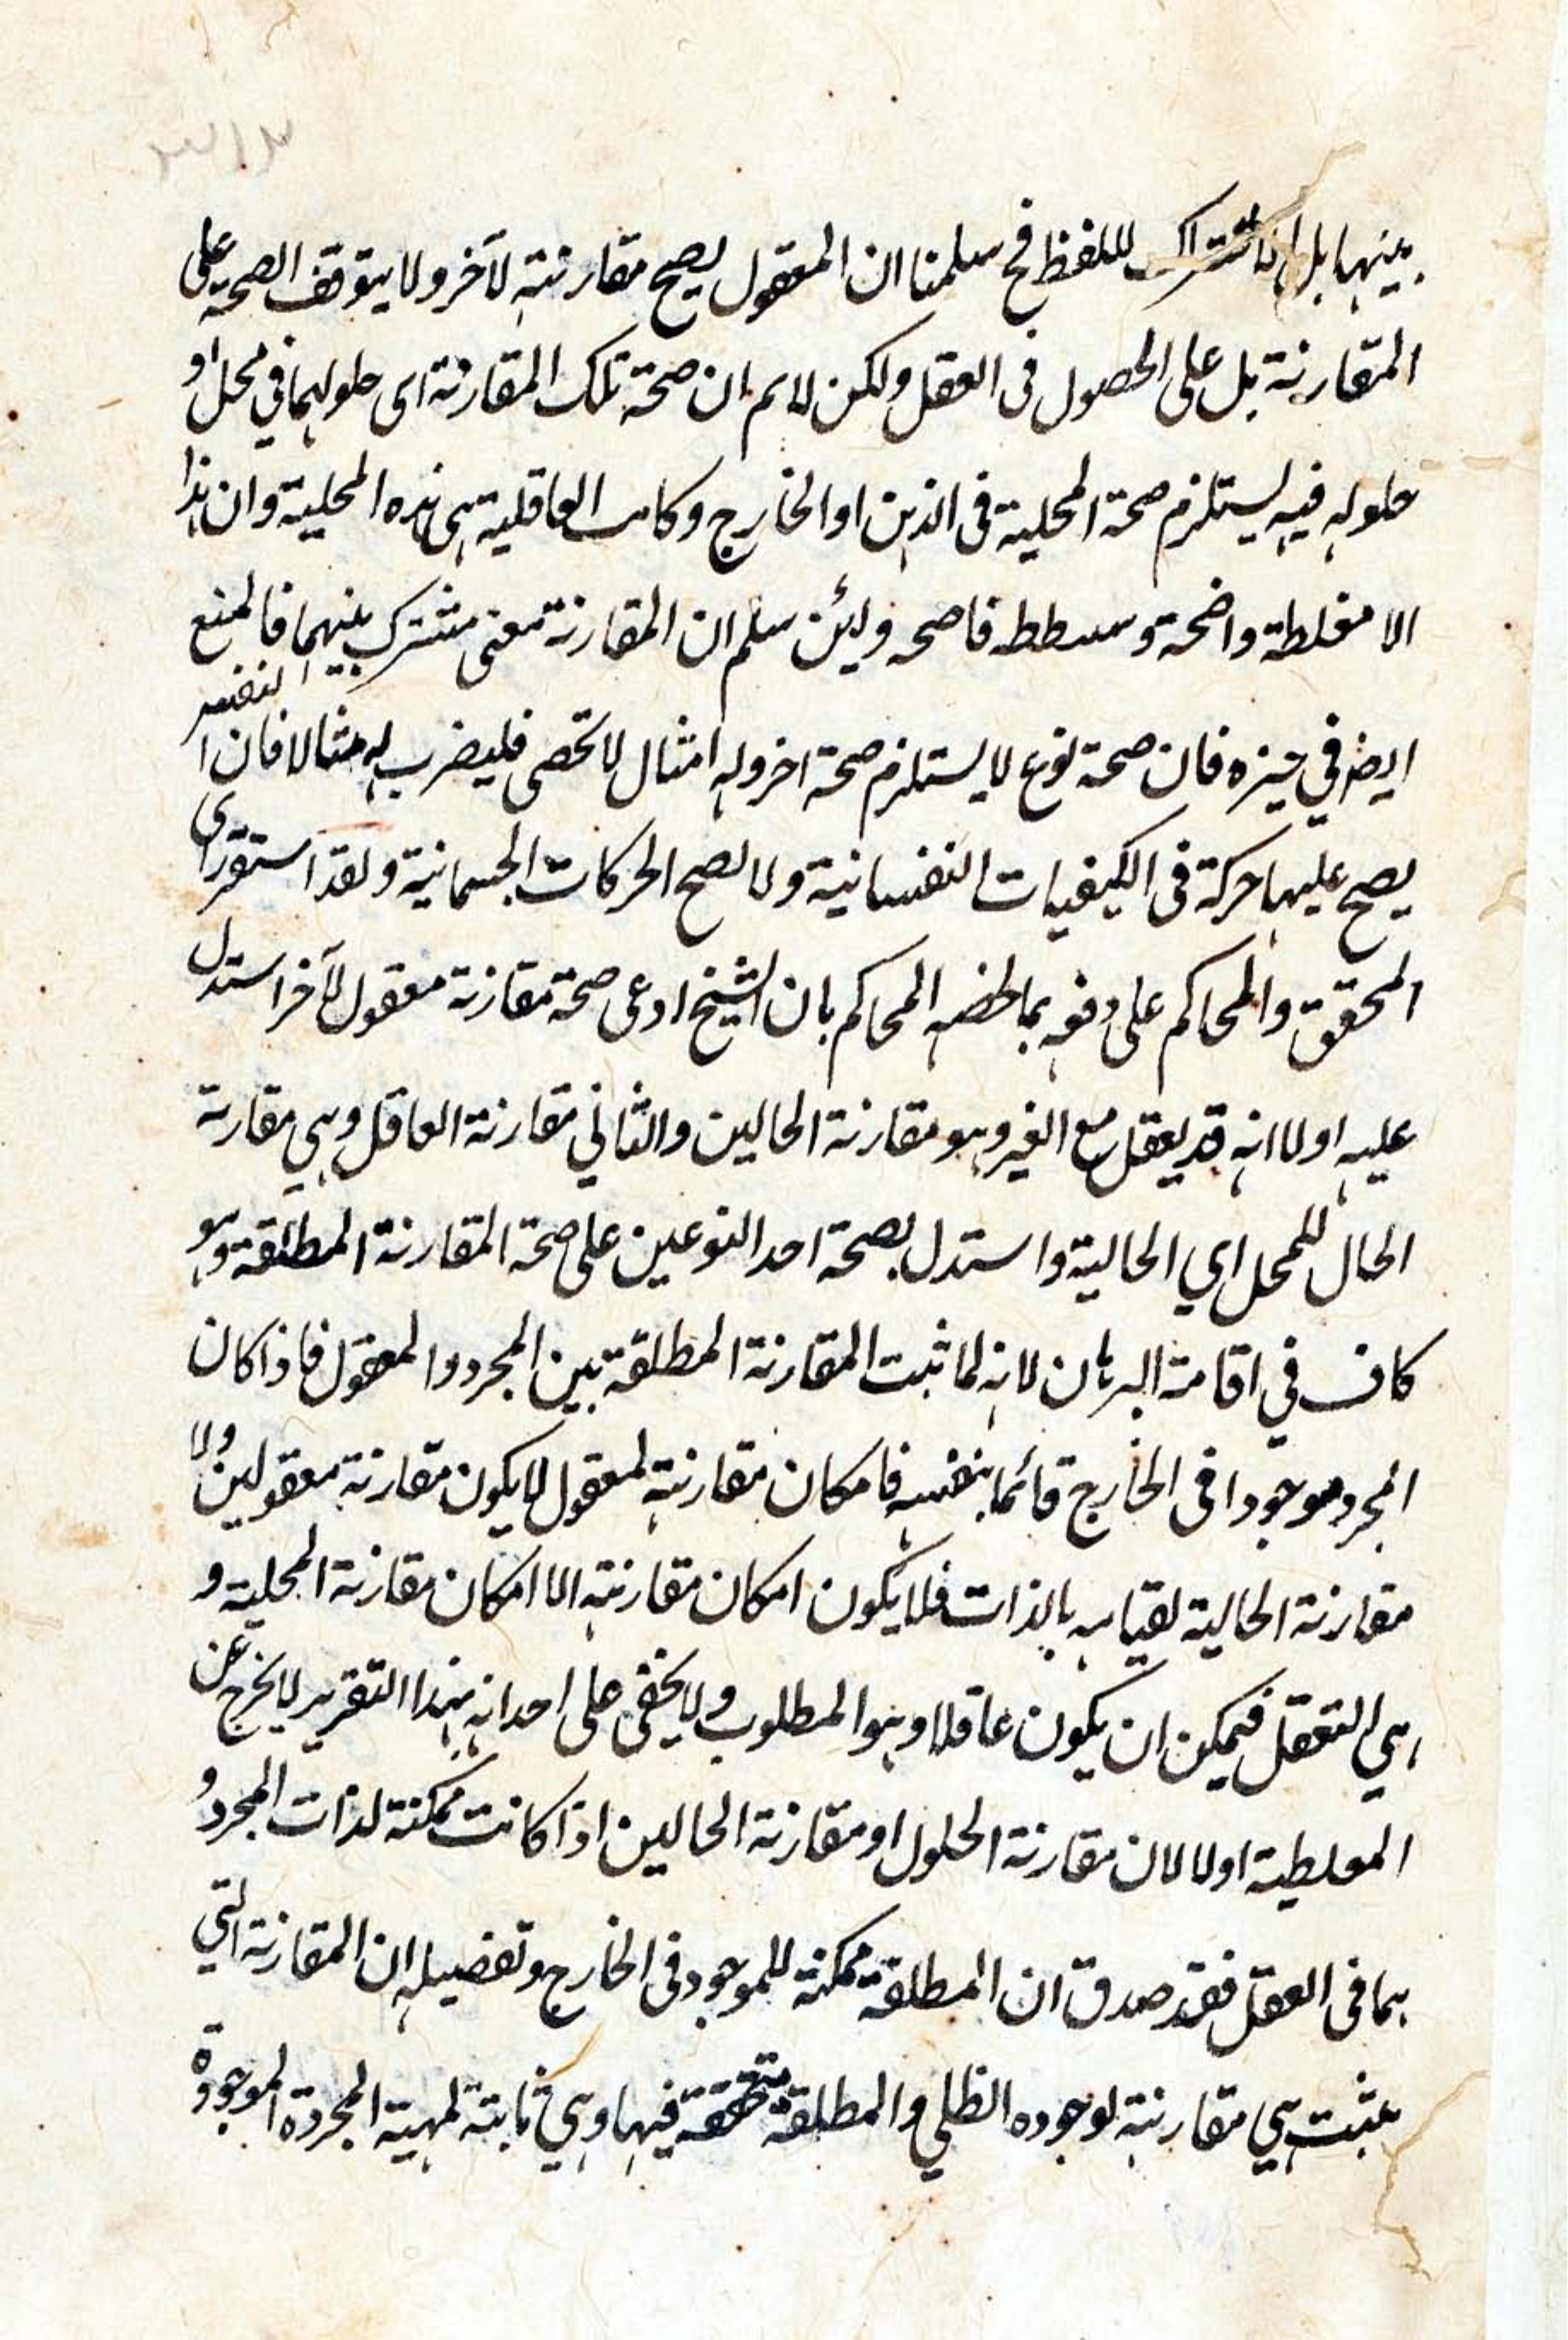 بينهما بل اشتراك اللفظ فح سلمنا ان المعقول يصح مقارنته لآخر ولا يتوقف الصحة على
المقارنة بل على الحصول فى العقل ولكن لانم ان صحة تلك المقارنة اى حلولهما في محل او
حلوله فيه يستلزم صحة المحلية فى الذهن او الخارج وكانت العاقلية هى هذه المحلية وان هذا
الا مغلطة واضحة وسطط فاضحه ولئن سلم ان المقارنة معنى مشترك بينهما فالمنع
ايضا في حيزه فان صحة نوع لا يستلزم صحة اخر وله امثال لا تحصى فليضرب له مثالا فان النفس
يصح عليها حركة فى الكيفيات النفسانية ولا تصح الحركات الجسمانية ولقد استقر راى
المحقق والمحاكم على دفعه بما لخصه المحاكم بان الشيخ ادعى صحة مقارنة معقول لآخر استدل
عليه اولا انه قد يعقل مع الغير وهو مقارنة الحالين والثاني مقارنة العاقل وهي مقارنة
الحال للمحل اي الحالية واستدل بصحة احد النوعين على صحة المقارنة المطلقة وهو
كاف في اقامة البرهان لانه لما ثبت المقارنة المطلقة بين المجرد والمعقول فاذا كان
المجرد موجودا فى الخارج قائما بنفسه فامكان مقارنته لمعقول لا يكون مقارنة معقولين ولا
مقارنة الحالية لقيامه بالذات فلا يكون امكان مقارنته الا امكان مقارنة المحلية و
هي التعقل فيمكن ان يكون عاقلا وهو المطلوب ولا يخفى على احد انه بهذا التقرير لا يخرج عن
المغلطية اولا لان مقارنة الحلول او مقارنة الحالين اذا كانت ممكنة لذات المجرد و
هما فى العقل فقد صدق ان المطلقة ممكنة للموجود فى الخارج وتفصيله ان المقارنة التي
يثبت هي مقارنة لوجوده الظلي والمطلقة متحققة فيها وهي ثابتة لمهية المجردة الموجودة